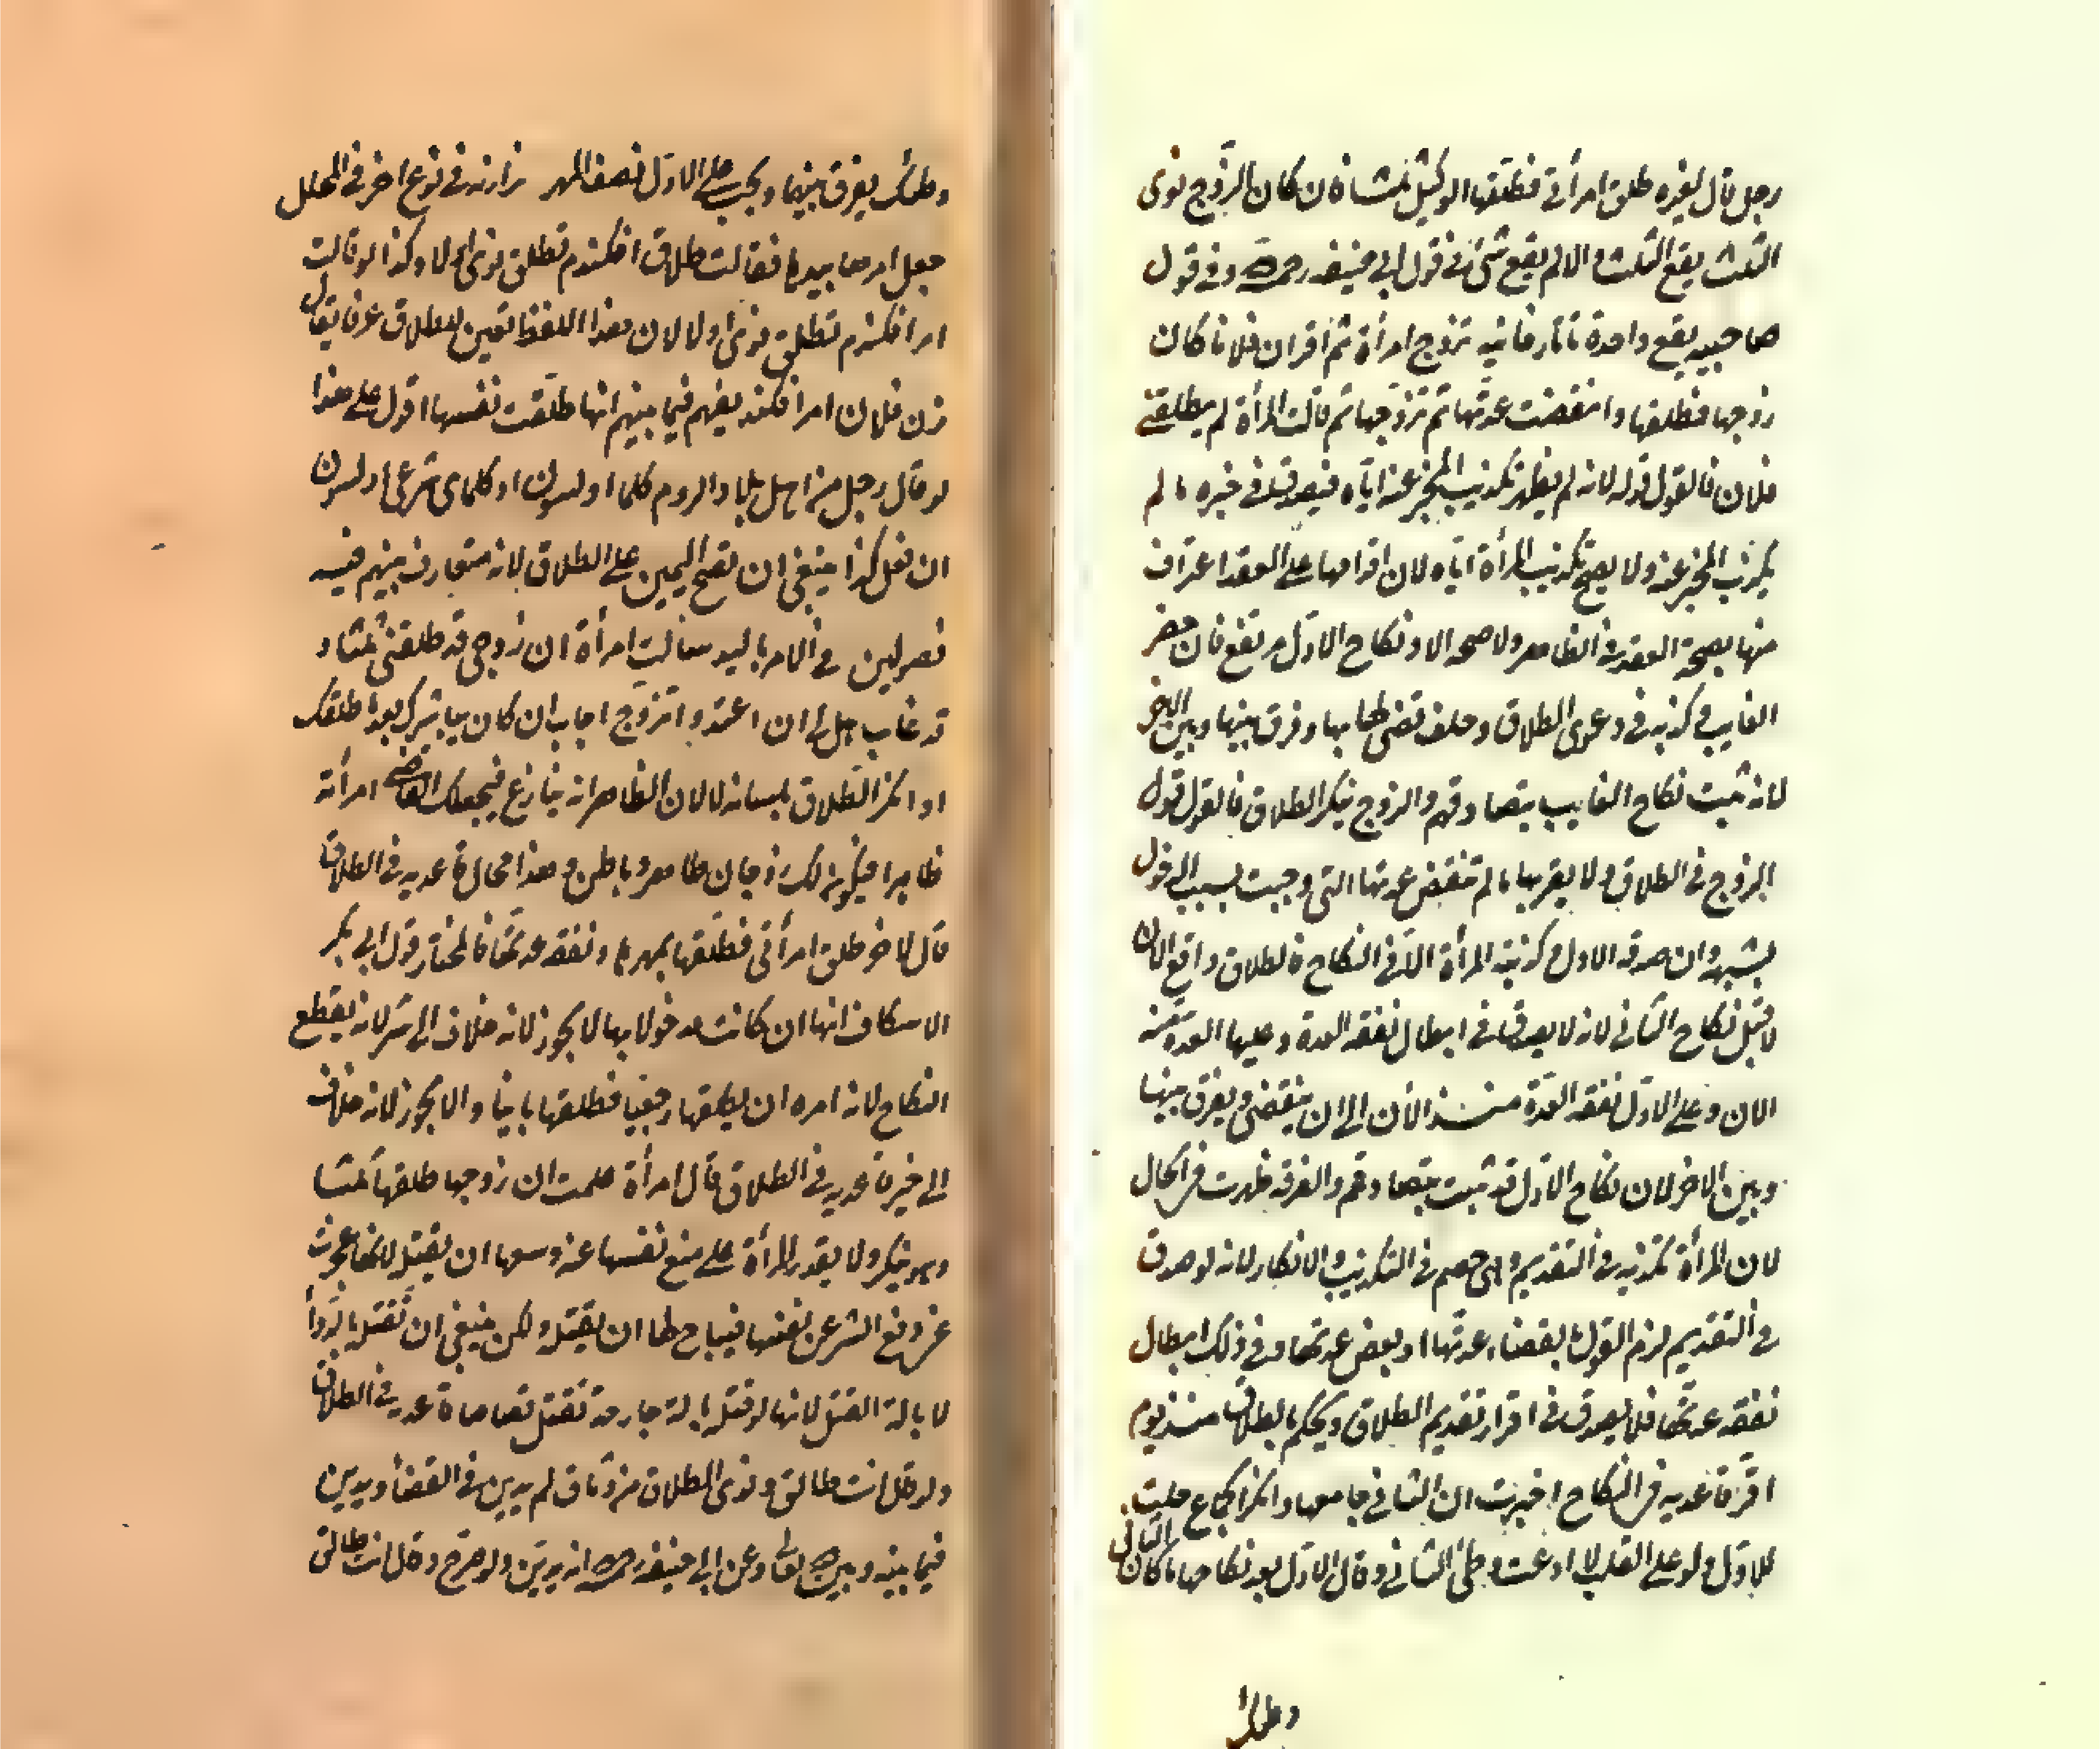 رجل قال لغيره طلق امرأتي فطلقها الوكيل ثلثا ان كان الزوج نوى
الثلث يقع الثلث والا لم يقع شئ في قول ابي حنيفه رحمه الله وفي قول
صاحبيه يقع واحدة تاتارخانيه تزوج امرأة ثم اقر ان فلانا كان
زوجها فطلقها وانقضت عدتها ثم تزوجها ثم قالت المرأة لم يطلقني
فلان فالقول قوله لانه لم يظهر تكذيب المخبر عنه اياه فيصدق في خبره ما لم
يكذب المخبر عنه ولا يصح تكذيب المرأة اياه لان اقدامها على العقد اعتراف
منها بصحة العقد في الظاهر ولا صحه الا ونكاح الاول مرتفع فان حضر
الغايب وكذبه في دعوى الطلاق وحلف قضى لها بها وفرق بينها وبين الاخر
لانه ثبت نكاح الغايب بتصادقهم والزوج ينكر الطلاق فالقول قول
الزوج في الطلاق ولا يقربها ما لم تنقض عدتها التي وجبت بسبب الدخول
بشبهه وان صدقه الاول وكذبته المرأة في النكاح فالطلاق واقع الان
لا قبل نكاح الثاني لانه لا يصدق في ابطال نفقه العدة وعليها العدة منه
الان وعلى الاول نفقه العدة منذ الان الى ان ينقضي ويفرق بينها
وبين الاخر لان نكاح الاول قد ثبت بتصادقهم والفرقه ظهرت في الحال
لان المرأة تكذبه في التقديم وهي خصم في التكذيب والانكار لانه لو صدق
في التقديم لزم القول بانقضاء عدتها او بعض عدتها وفي ذلك ابطال
نفقه عدتها فلا يصدق في اقرار تقديم الطلاق ويحكم بالطلاق منذ يوم
اقر قاعديه في النكاح اخبرت ان الثاني جامعها وانكر الجماع حلت
للاول ولو على القلب لا ادعت وطئ الثاني وقال الاول بعد نكاحها ما كان الثاني
وطئك
وطئك يفرق بينهما ويجب على الاول نصف المهر بزازيه في نوع اخر في المحلل
جعل امرها بيدها فقالت طلاق افكندم تطلق نوى اولا وكذا لو قالت
امر افكندم تطلق نوى اولا لان هذا اللفظ تعين للطلاق عرفا يقال
زن فلان امر افكند يفهم فيما بينهم انها طلقت نفسها اقول على هذا
لو قال رجل من اهل بلاد الروم كلما اولسون او كلماي شرعي اولسون
ان فعل كذا ينبغي ان تصح اليمين على الطلاق لانه متعارف بينهم فيه
في الامر باليد سالت امرأة ان زوجي قد طلقني ثلثا و
قد غاب هل لي ان اعتد واتزوج اجاب ان كان يباشرك بعد ما طلقك
او انكر الطلاق بلسانه لا لان الظاهر انه ينازع فيجعلك القاضي امرأته
ظاهرا فيكون لك زوجان ظاهر وباطن وهذا محال قاعديه في الطلاق
قال لاخر طلق امرأتي فطلقها بمهرها ونفقه عدتها فالمختار قول ابي بكر
الاسكاف انها ان كانت مدخولا بها لا يجوز لانه خلاف الى شر لانه يقطع
النكاح لانه امره ان يطلقها رجعيا فطلقها باينا والا يجوز لانه خلاف
الى خير قاعديه في الطلاق قال امرأة علمت ان زوجها طلقها ثلثا
وهو ينكر ولا يقدر المرأة على منع نفسها عنه وسعها ان يقتل لانها عجزت
عن دفع الشر عن نفسها فيباح لها ان يقتله ولكن ينبغي ان تقتل بالدواء
لا بالة القتل لانها لو قتل بالة جارحة تقتل قصاصا قاعديه في الطلاق
ولو قال انت طالق ونوى الطلاق من وثاق لم يدين في القضا ويدين
فيما بينه وبين الله تعالى وعن ابي حنيفه رحمه الله انه يدين ولو صرح وقال انت طالق